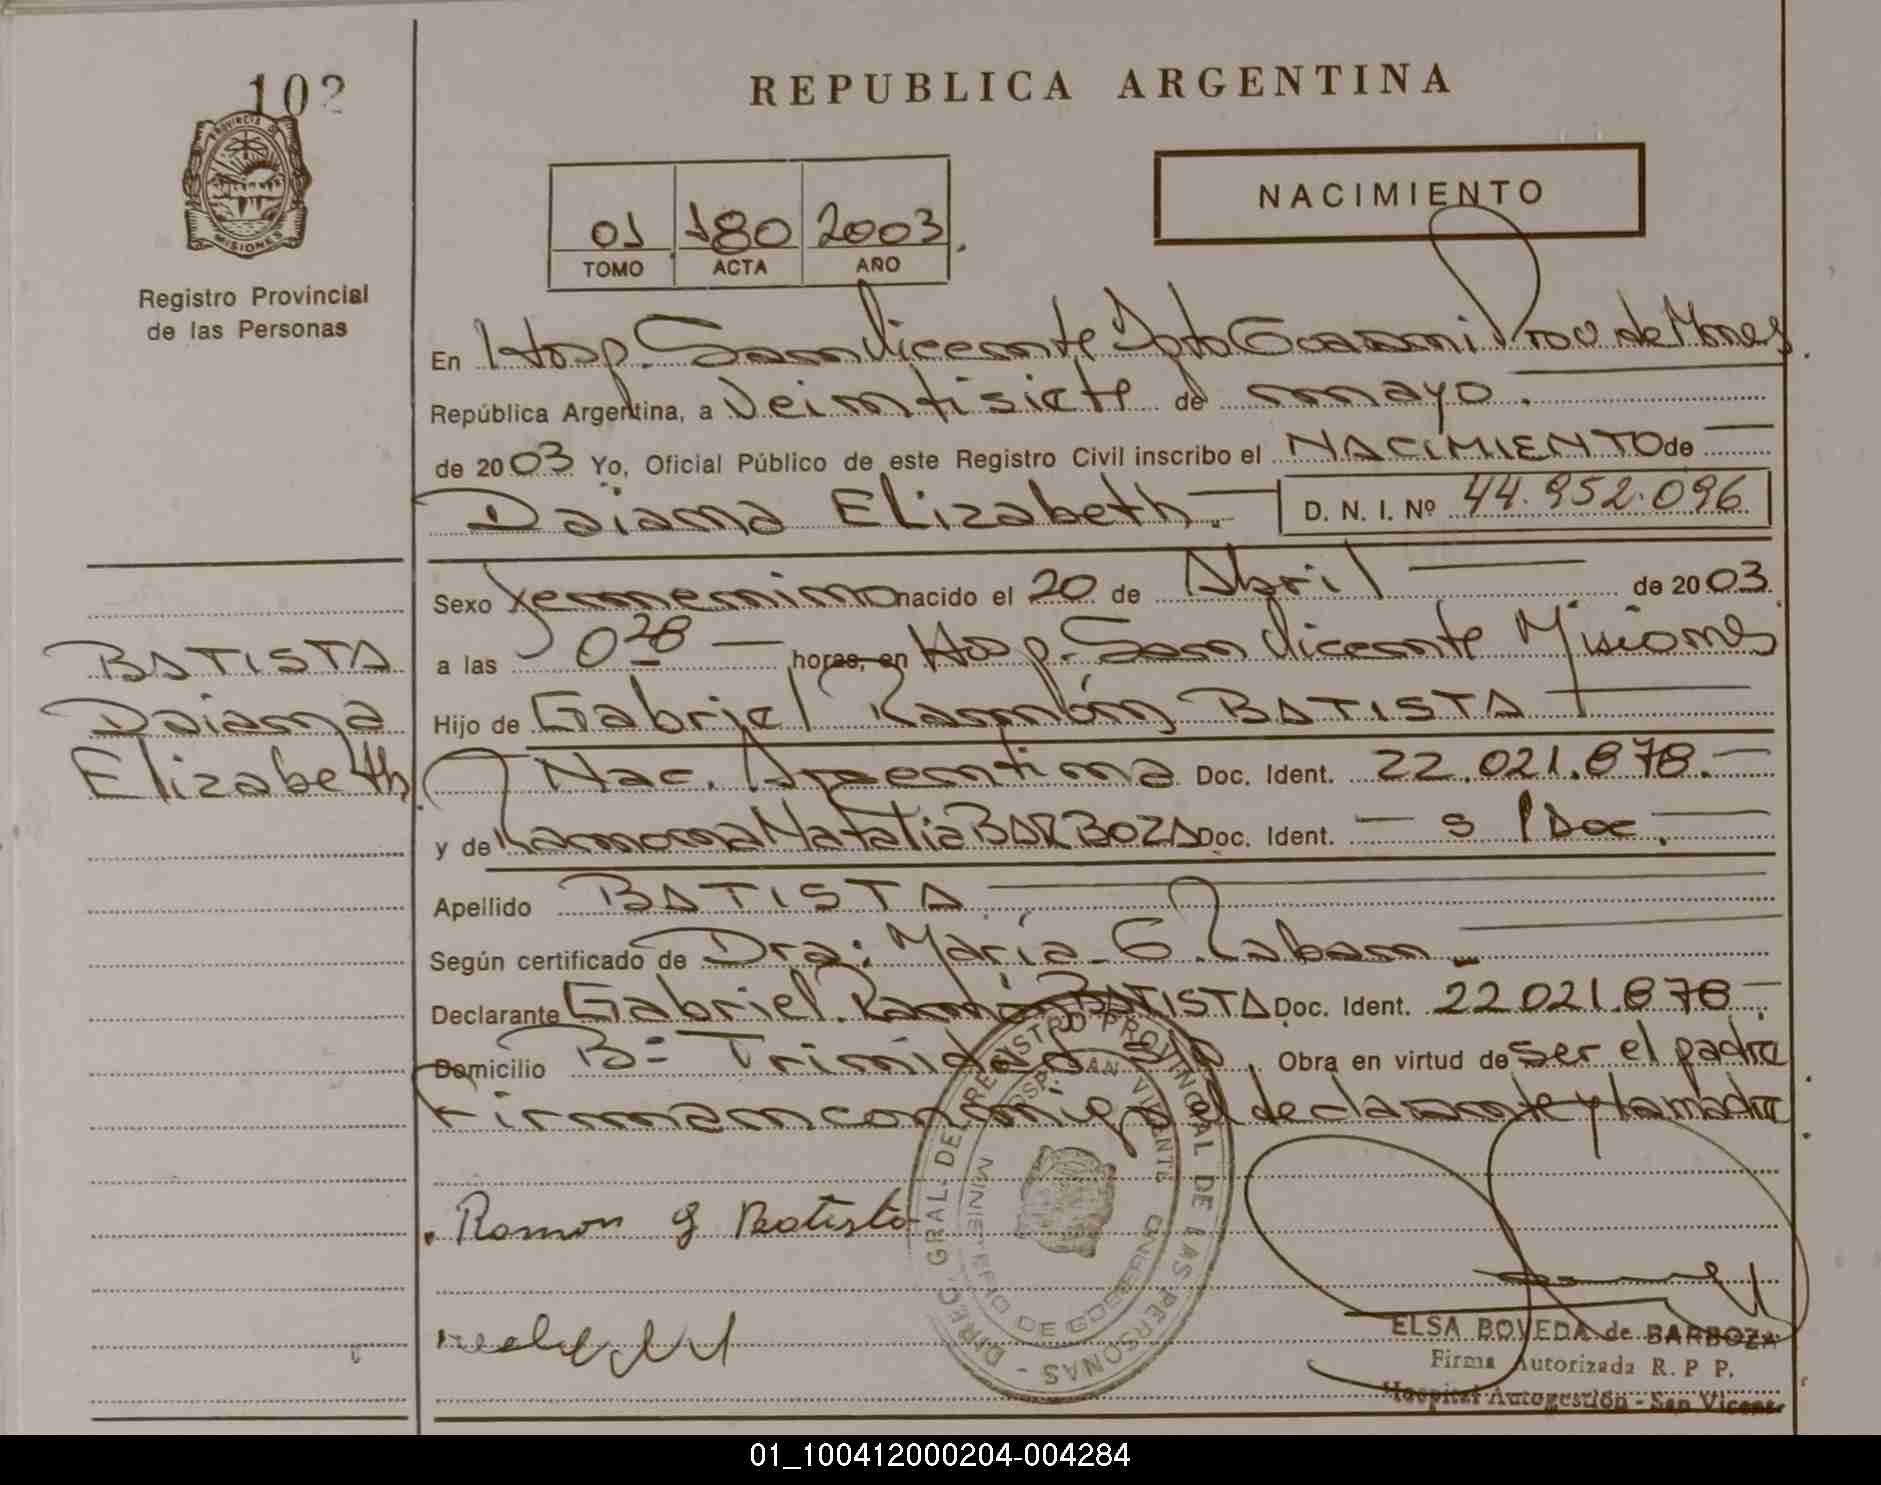 102
PROVINCIA DE
MISIONES
Registro Provincial
de las Personas
REPUBLICA ARGENTINA
NACIMIENTO
01 180 2003
TOMO ACTA AÑO
En Hosp. San Vicente Dpto Guarani Prov de Mnes.
República Argentina, a Veintisiete de mayo.
de 2003 Yo, Oficial Público de este Registro Civil inscribo el NACIMIENTO de
Daiana Elizabeth D. N. I. Nº 44.952.096
Sexo Femenino nacido el 20 de Abril de 2003.
a las 0 28 horas, en Hosp. San Vicente Misiones
Hijo de Gabriel Ramón BATISTA
Nac. Argentina Doc. Ident. 22.021.878.
y de Ramona Natalia BARBOZA Doc. Ident. s/Doc.
Apellido BATISTA
Según certificado de Dra: María G.
Declarante Gabriel Ramón BATISTA Doc. Ident. 22 021.878
Domicilio Bº Trinidad Obra en virtud de ser el padre
Firman conmigo el declarante y la madre
BATISTA
Daiana
Elizabeth
Ramon G Batista
DIREC. GRAL. DE REGISTRO PROVINCIAL DE LAS PERSONAS -
HOSP. SAN VICENTE
MINISTERIO DE GOBIERNO
ELSA BOVEDA de BARBOZA
Firma Autorizada R. P. P.
Hospital Autogestión - San Vicente
01_100412000204-004284